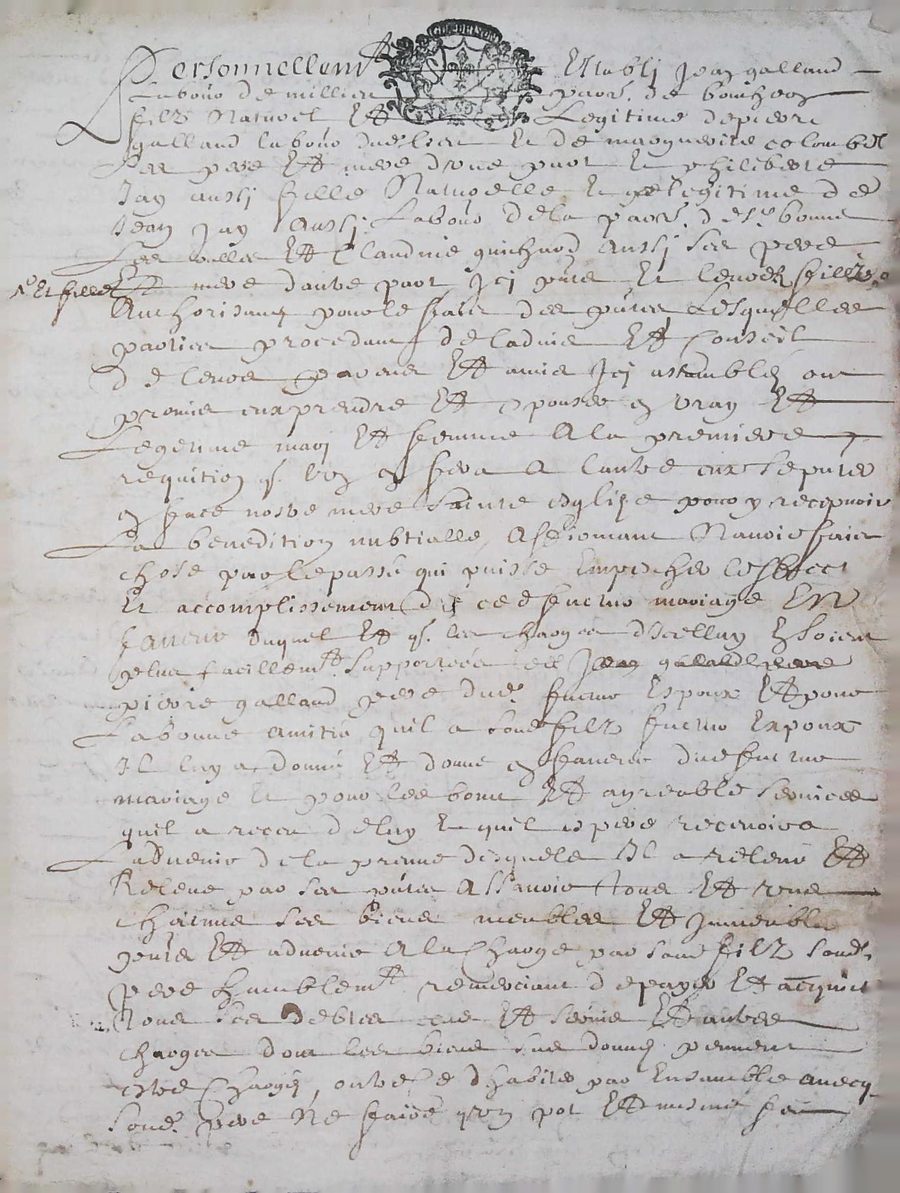 Personnellem.t Establj Jean galland
Labour de millier parr. de bonhey
filz Naturel Et Legitime depierre
galland labour dud. lieu Et de marguerite colombet
ses pere Et mere dune part Et philiberte
Jay aussj fille Naturelle Et legitime de
Jean Jay Aussj Labour dela parr. de s.te bonne
Et Claudine guichard aussj ses pere
Et fille
Et mere dautre part Icj p.ntz Et leurs filz
Authorisant pour le faire des p.ntes Lesquelles
parties procedant de ladvis Et Conseil
de leurs parens Et amis Icj assemblés ont
promis eux prendre Et espouser en vray Et
Legitime marj Et femme A la premiere
requition q. lun en fera a lautre eux se p.nter
en face nostre mere sainte esglize pour y recepvoir
La benedition nubtialle Affirmant Navoir faict
chose par le passé qui puisse Empescher leffect
Et accomplissement de ced. futur mariage En
faveur duquel Et q. les charges dicelluy Soient
plus facillem.t supportées Jean galland
pierre galland pere dud. futur Espoux Et pour
La bonne amitié quil a sond. filz futur Expoux
Il luy a donné Et donne en faveur dud. futur
mariage Et pour les bons Et agreable services
quil a receu deluy Et quil espere recevoir
Ladvenir de la preuve desquels Il a Relevé Et
Releve par ses p.ntes Assavoir tous Et uns
chacuns ses biens meubles Et Immeubles
p.nts Et advenir A la Charge par sond. filz sond.
pere humblem.t remerciant de payer Et acquit.
tous ses debtes Et servis Et autres
charges dont les biens sus donnés peuvent
estre Chargés, outre ce dhabiter par Ensemble avecq
sond. pere Ne faire qun pot Et mesme feu